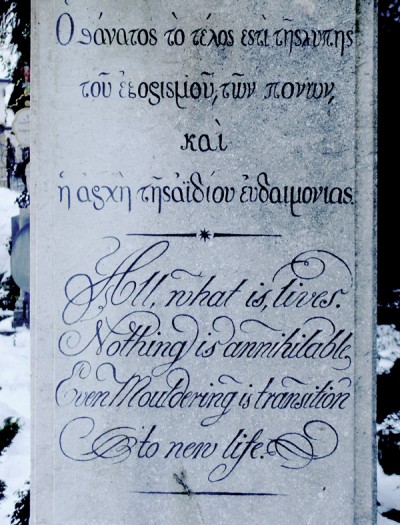 Ὁ θάνατος τὸ τέλος εστὶ τῆς λυπης
τοῦ ἐξορισμοῦ, τῶν πονων,
καὶ
ἡ ἀρχὴ τῆς αϊδίου ἐυδαιμονιας.
All, what is, lives.
Nothing is annihilable,
Even Mouldering is transition
to new life.